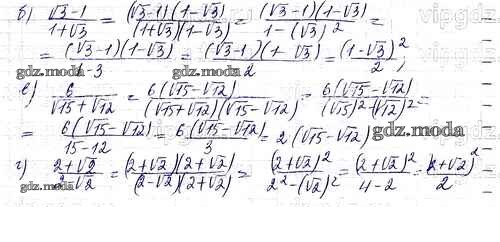 б) (√3-1)/(1+√3) = ((√3-1)(1-√3))/((1+√3)(1-√3)) = ((√3-1)(1-√3))/(1-(√3)²) =
= ((√3-1)(1-√3))/(1-3) = ((√3-1)(1-√3))/2 = (1-√3)²/2,
gdz.moda gdz.moda
в) 6/(√15+√12) = (6(√15-√12))/((√15+√12)(√15-√12)) = (6(√15-√12))/((√15)²-(√12)²) =
= (6(√15-√12))/(15-12) = (6(√15-√12))/3 = 2(√15-√12)
gdz.moda gdz.moda
г) (2+√2)/(2-√2) = ((2+√2)(2+√2))/((2-√2)(2+√2)) = (2+√2)²/(2²-(√2)²) = (2+√2)²/(4-2) = (2+√2)²/2
gdz.moda